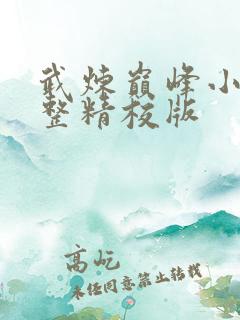 武炼巅峰小
整精校版
高屹
未经同意禁止转载